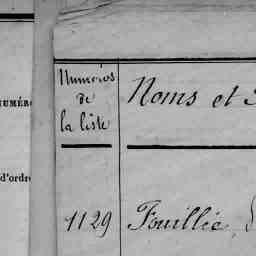 NUMÉR
d'ordr
Numéros
de
la liste
Noms et
1129 Fouillée,